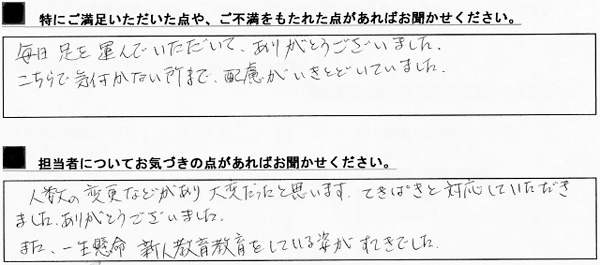 ■ 特にご満足いただいた点や、ご不満をもたれた点があればお聞かせください。
毎日 足を運んでいただいて、ありがとうございました。
こちらで気付かない所まで、配慮がいきとどいていました。
■ 担当者についてお気づきの点があればお聞かせください。
人数の変更などがあり大変だったと思います。てきぱきと対応していただき
ました。ありがとうございました。
また、一生懸命 新人教育教育をしている姿がすてきでした。